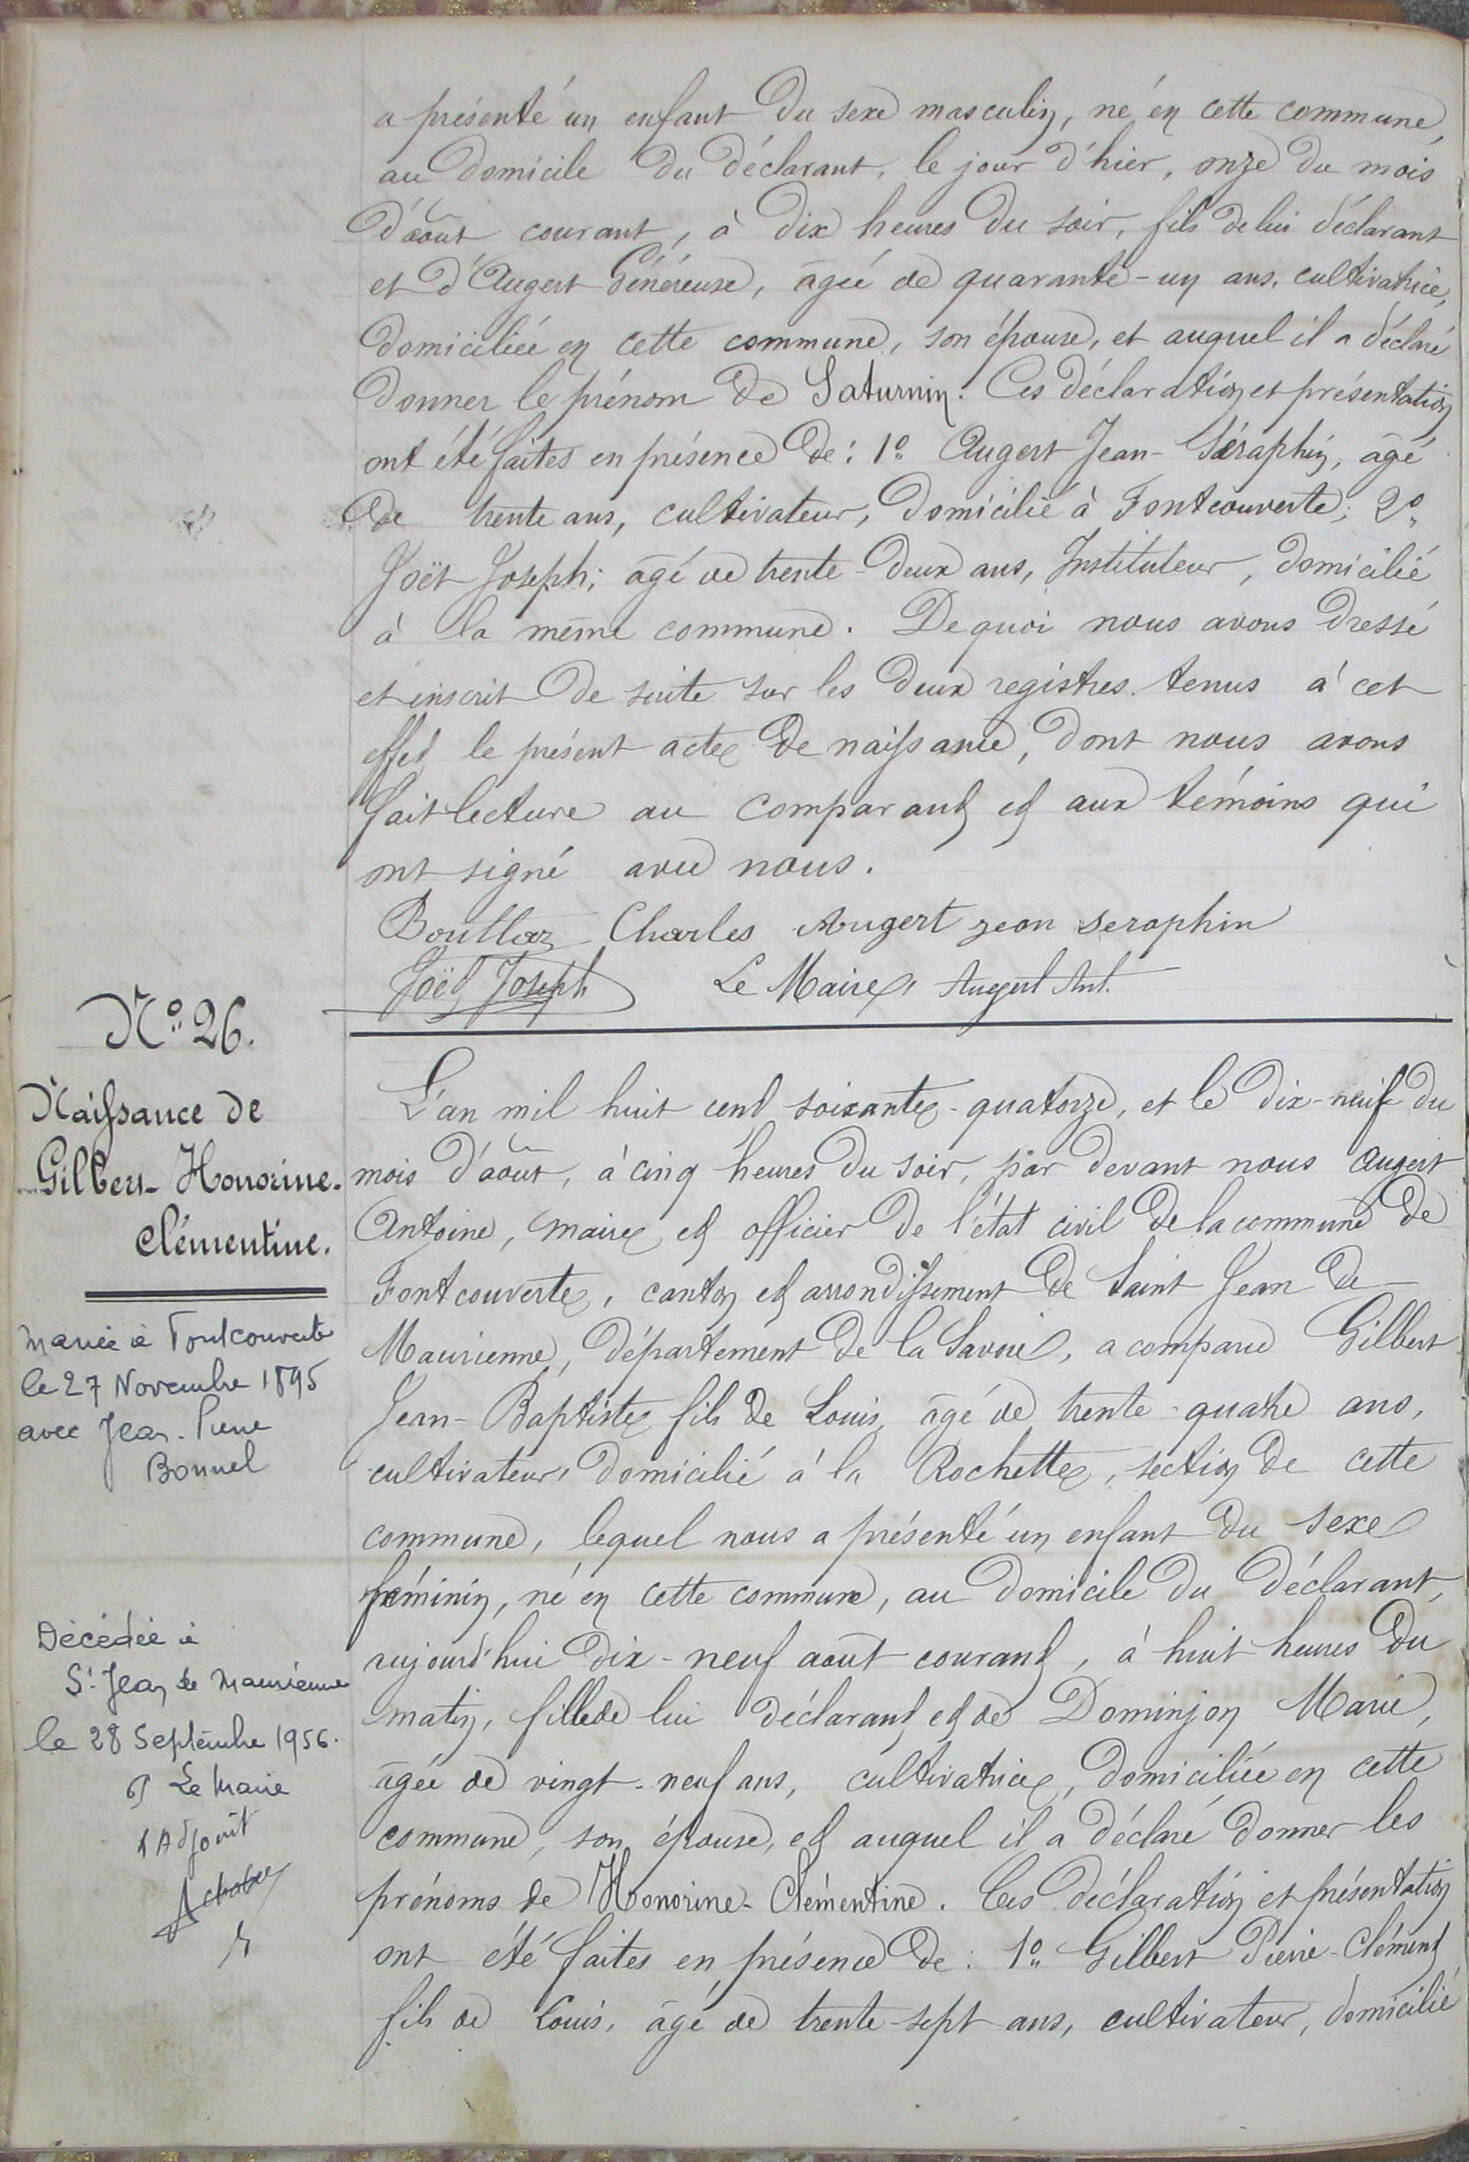 a présenté un enfant du sexe masculin, né en cette commune,
au domicile du déclarant, le jour d'hier, onze du mois
d'août courant, à dix heures du soir, fils de lui déclarant
et d'Augert Généreuse, âgée de quarante-un ans, cultivatrice,
domiciliée en cette commune, son épouse, et auquel il a déclaré
donner le prénom de Saturnin. Ces déclaration et présentation
ont été faites en présence de: 1° Augert Jean-Séraphin, âgé
de trente ans, cultivateur, domicilié à Fontcouverte; 2°
Joët Joseph; âgé de trente-deux ans, Instituteur, domicilié
à la même commune. De quoi nous avons dressé
et inscrit de suite sur les deux registres tenus à cet
effet le présent acte de naissance, dont nous avons
fait lecture au comparant et aux témoins qui
ont signé avec nous.
Bouttaz Charles Augert jean seraphin
Joët Joseph Le Maire, Augert Ant.
N° 26.
Naissance de
Gilbert Honorine-
Clémentine.
Mariée à Fontcouverte
le 27 Novembre 1895
avec Jean-Pierre
Bonnel
Décédée à
St Jean de Maurienne
le 28 Septembre 1956.
Le Maire
l'Adjoint
L'an mil huit cent soixante-quatorze, et le dix-neuf du
mois d'août, à cinq heures du soir, par devant nous Augert
Antoine, maire et officier de l'état civil de la commune de
Fontcouverte, canton et arrondissement de Saint Jean de
Maurienne, département de la Savoie, a comparu Gilbert
Jean-Baptiste fils de Louis, âgé de trente-quatre ans,
cultivateur, domicilié à la Rochette, section de cette
commune, lequel nous a présenté un enfant du sexe
féminin, né en cette commune, au domicile du déclarant,
aujourd'hui dix-neuf août courant, à huit heures du
matin, fille de lui déclarant et de Dominjon Marie,
âgée de vingt-neuf ans, cultivatrice, domiciliée en cette
commune, son épouse, et auquel il a déclaré donner les
prénoms de Honorine-Clémentine. Ces déclaration et présentation
ont été faites en présence de: 1° Gilbert Pierre-Clément
fils de Louis, âgé de trente-sept ans, cultivateur, domicilié